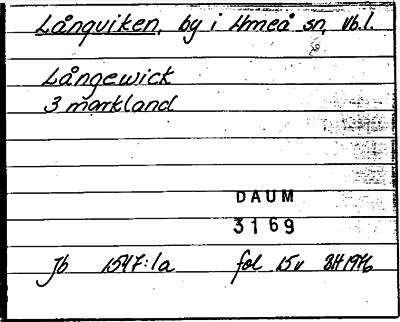 Långviken, by i Umeå sn, Vb.l.
Långewick
3 markland
DAUM
3169
Jb 1547:1a fol 15v BH 1976